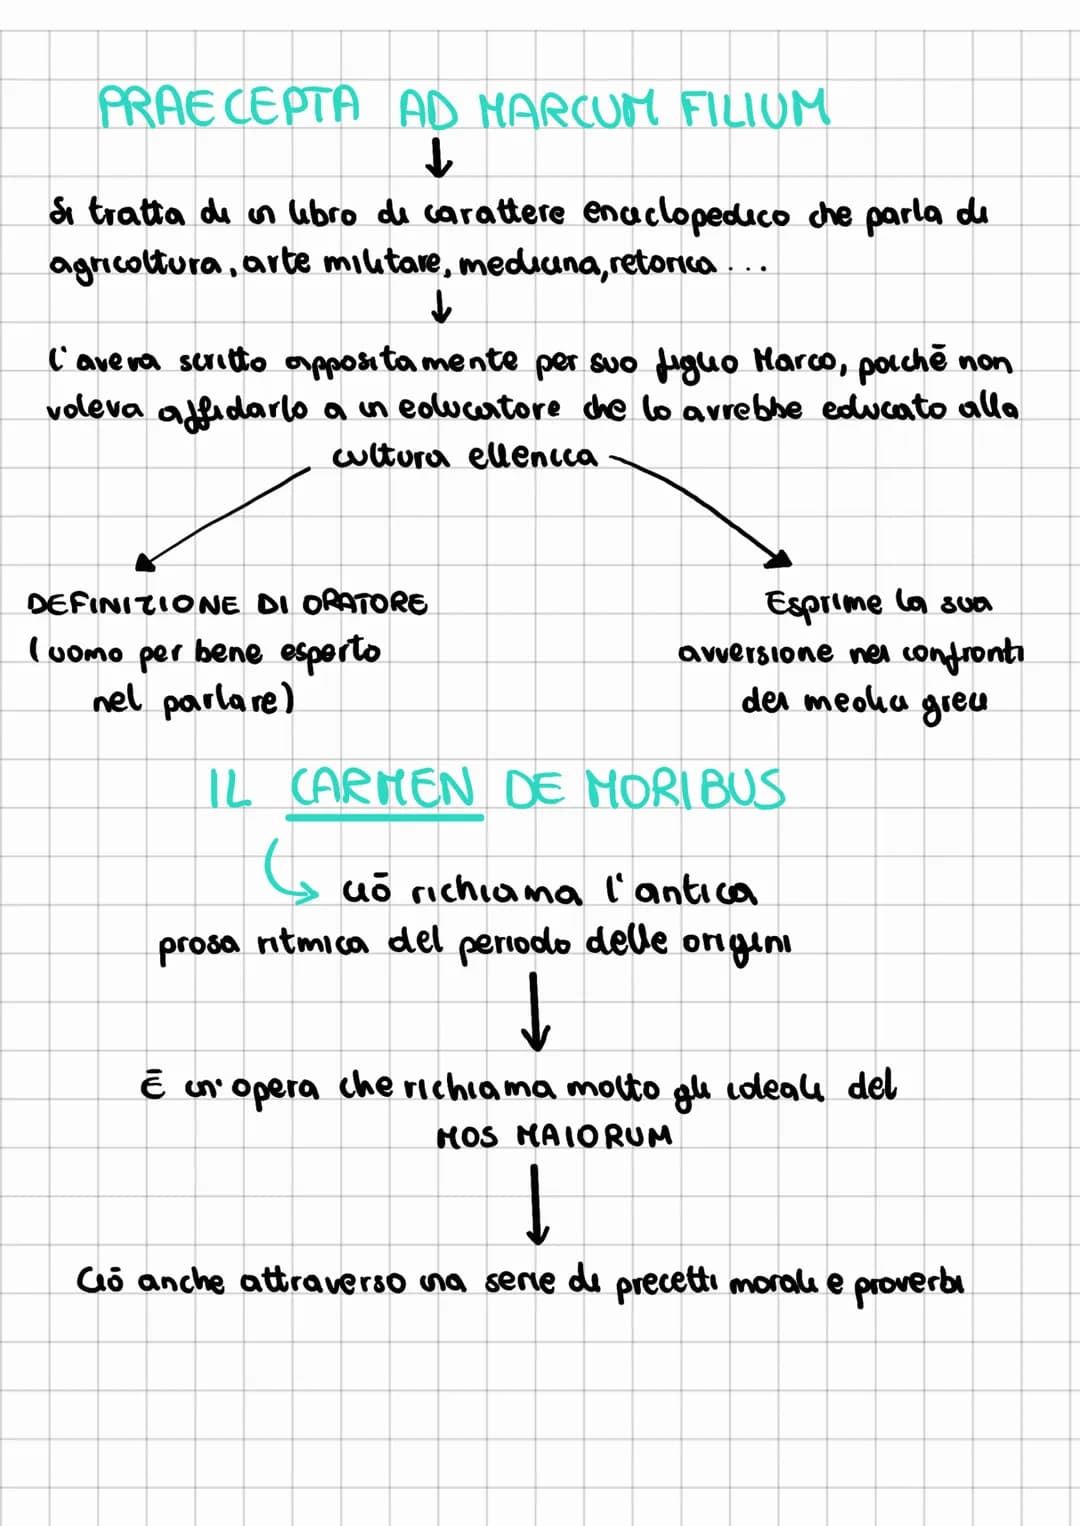 PRAECEPTA AD MARCUM FILIUM
Si tratta di un libro di carattere enciclopedico che parla di
agricoltura, arte militare, medicina, retorica ...
L'aveva scritto appositamente per suo figlio Marco, poichē non
voleva affidarlo a un educatore che lo avrebbe educato alla
cultura ellenica
DEFINIZIONE DI ORATORE
(uomo per bene esperto
nel parlare)
Esprime la sua
avversione nei confronti
dei medici greci
IL CARMEN DE MORIBUS
ciō richiama l'antica
prosa ritmica del periodo delle origini
Ē un'opera che richiama molto gli ideali del
MOS MAIORUM
Ciō anche attraverso una serie di precetti morali e proverbi